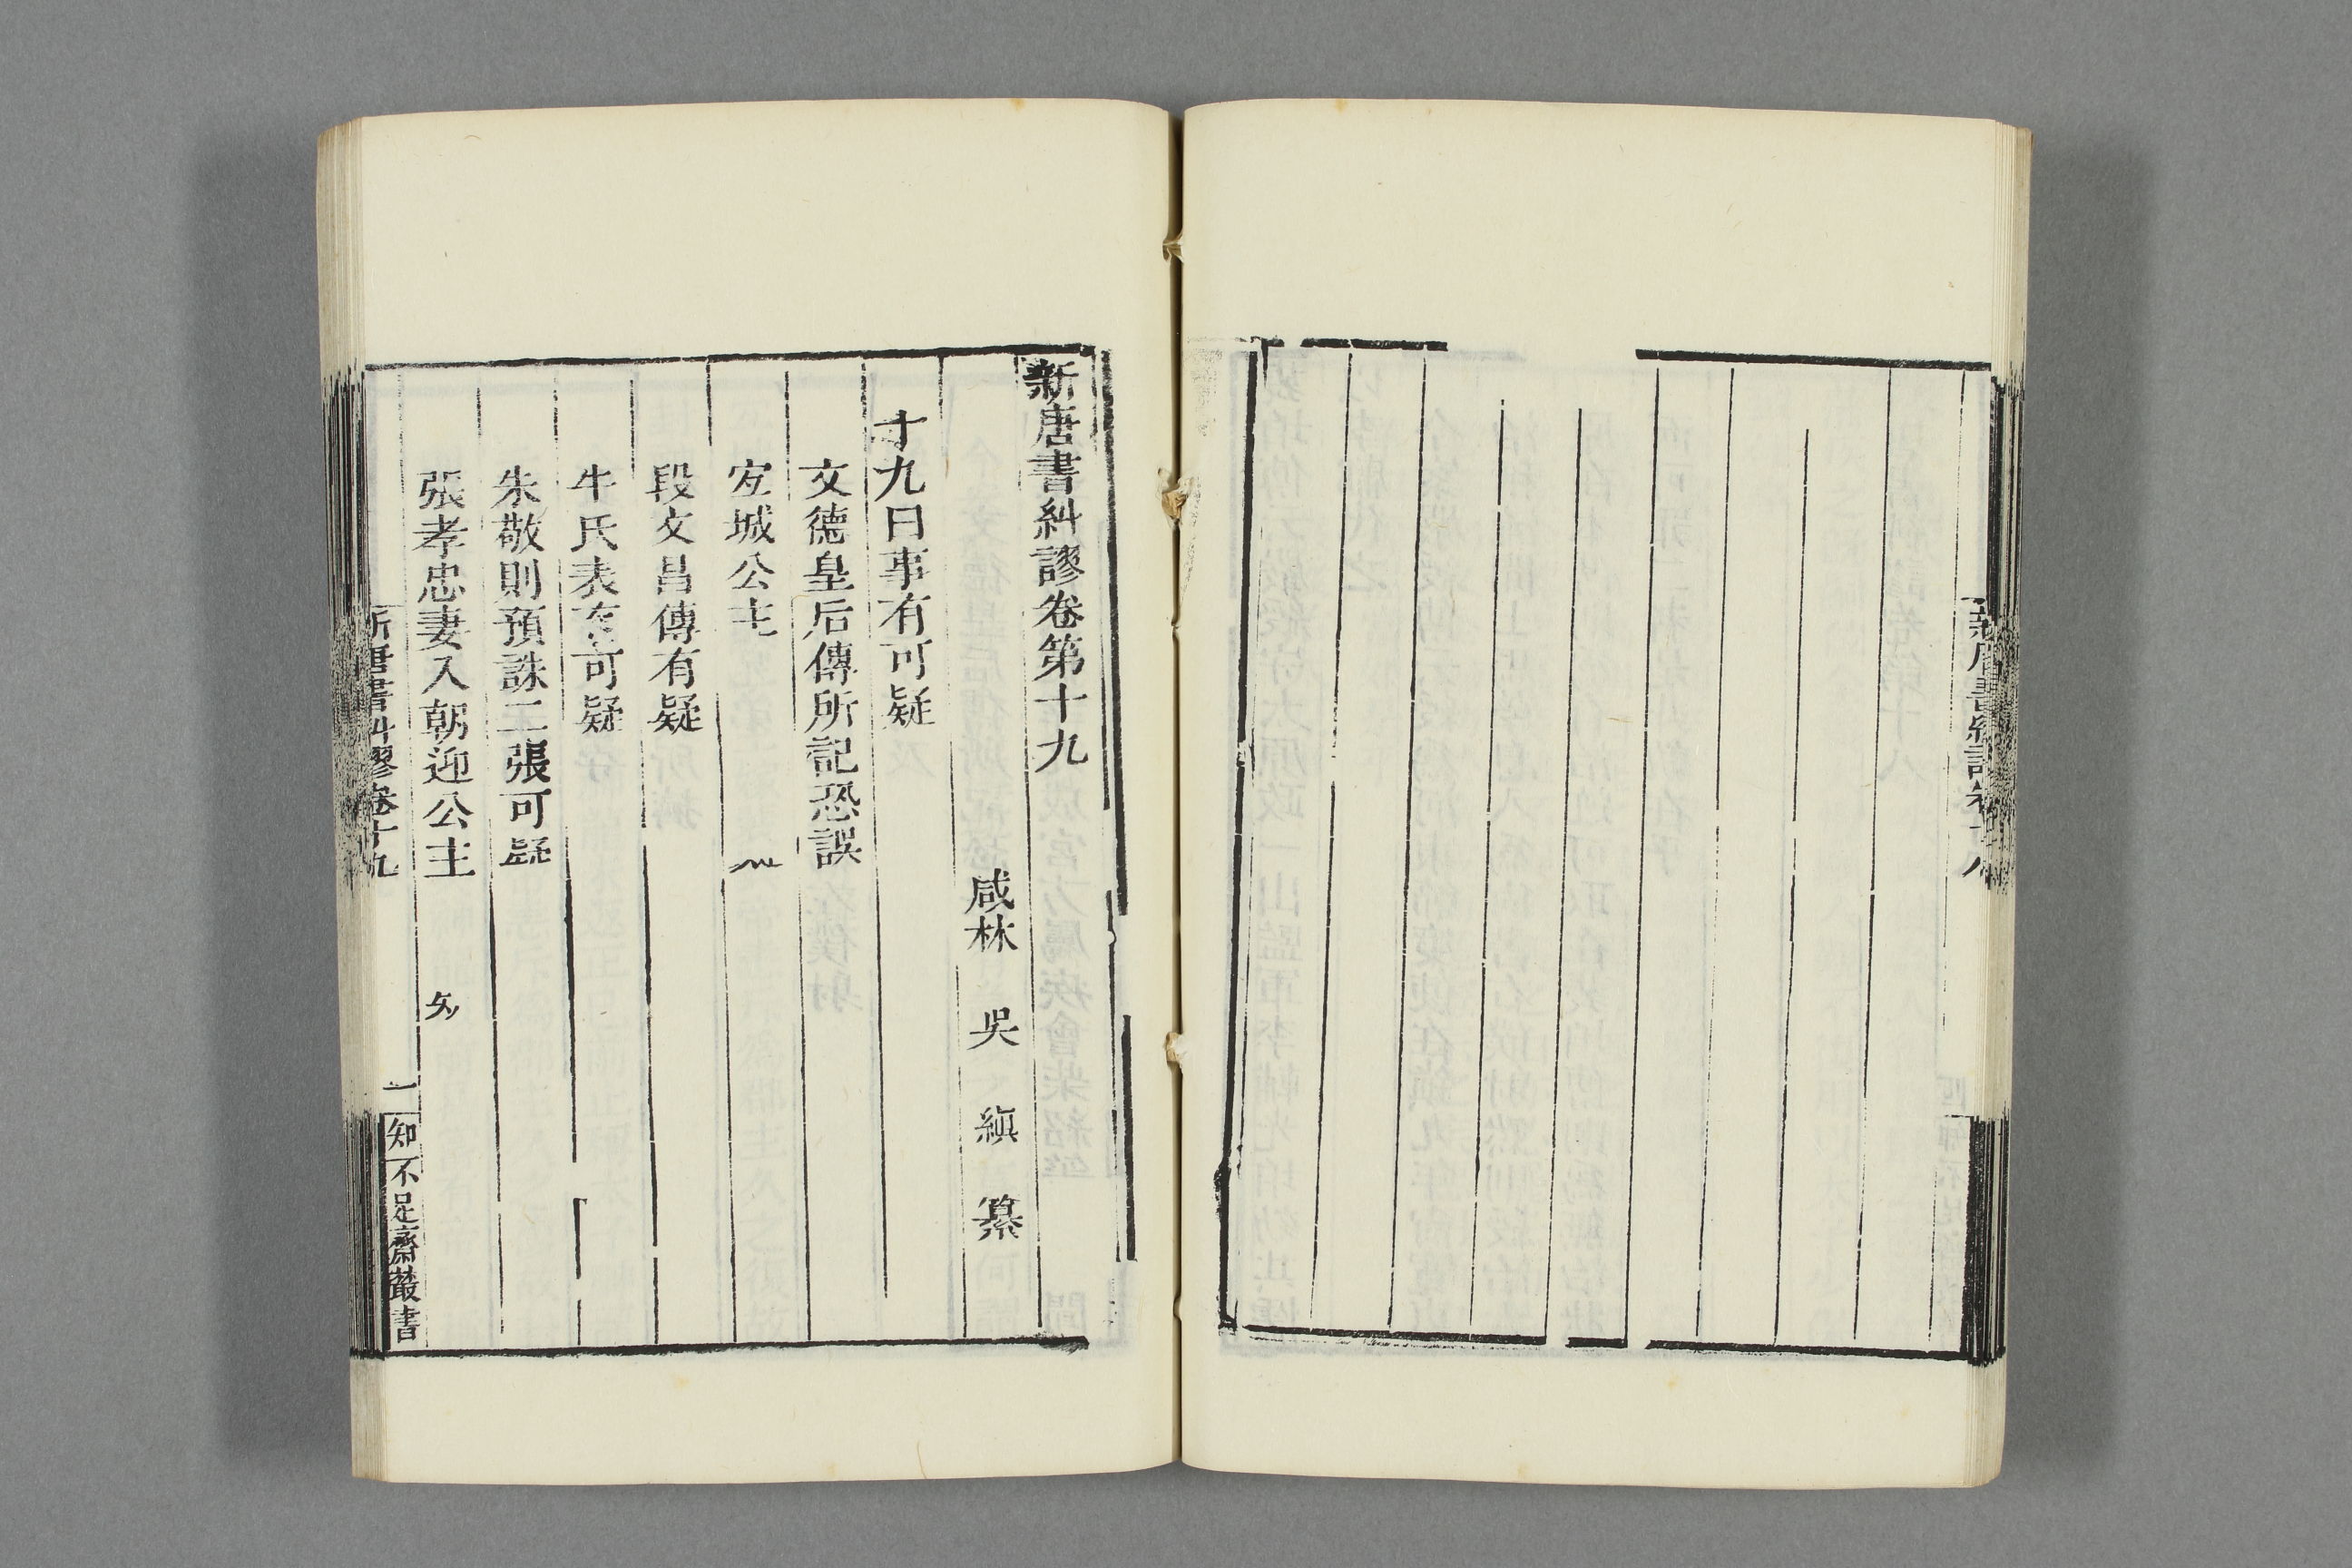 新唐書糾謬卷第十八
新唐書糾謬卷第十九
咸林 吳 縝 纂
十九曰事有可疑
文德皇后傳所記恐誤
定城公主
段文昌傳有疑
牛氏表有可疑
朱敬則預誅二張可疑
張孝忠妻入朝迎公主
新唐書糾謬卷十九
一
知不足齋叢書